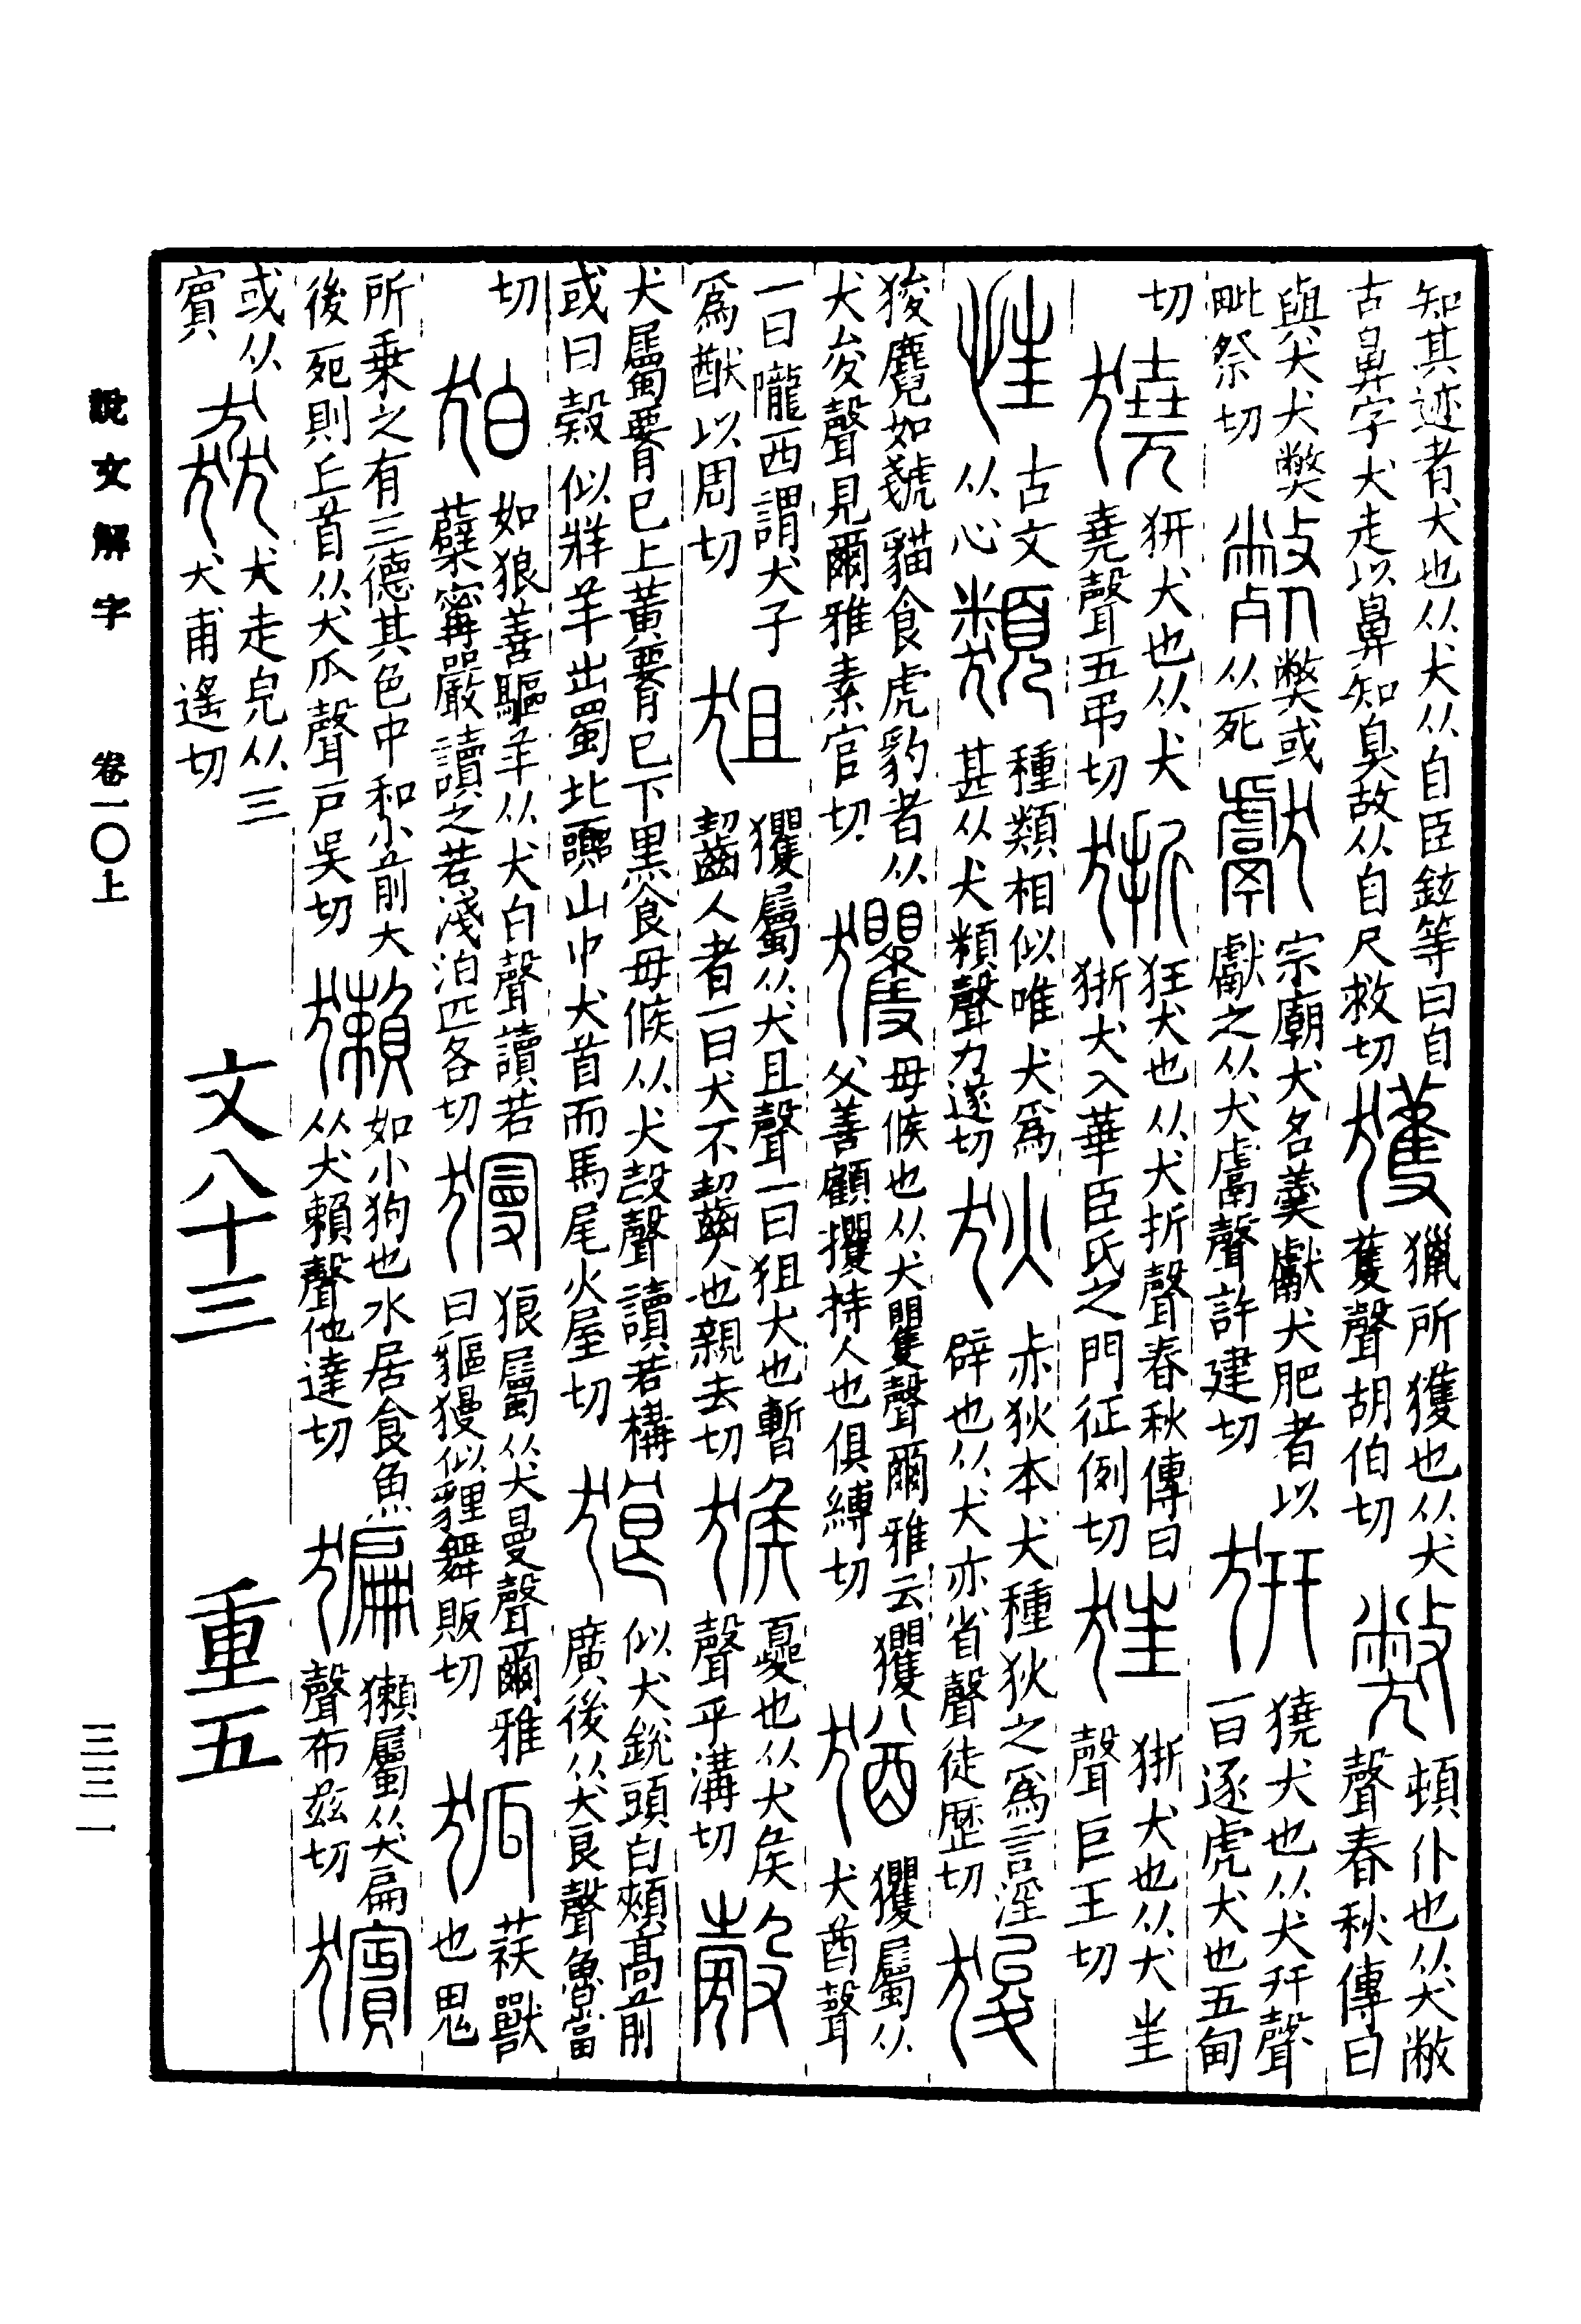 知其迹者犬也从犬从自臣鉉等曰自古鼻字犬走以鼻知臭故从自尺救切獲獵所獲也从犬蒦聲胡伯切獘頓仆也从犬敝聲春秋傳曰
與犬犬獘毗祭切斃獘或从死獻宗廟犬名羹獻犬肥者以獻之从犬鬳聲許建切㹮獟犬也从犬幵聲一曰逐虎犬也五甸
切獟㹮犬也从犬堯聲五弔切狾狂犬也从犬折聲春秋傳曰狾犬入華臣氏之門征例切狂狾犬也从犬㞷聲巨王切
𢙶古文从心類種類相似唯犬爲甚从犬頪聲力遂切狄赤狄本犬種狄之爲言淫辟也从犬亦省聲徒歷切狻
狻麑如虦貓食虎豹者从犬夋聲見爾雅素官切玃母猴也从犬矍聲爾雅云玃父善顧攫持人也俱縛切猶玃屬从犬酋聲
一曰隴西謂犬子爲猷以周切狙玃屬从犬且聲一曰狙犬也暫齧人者一曰犬不齧人也親去切猴夒也从犬矦聲乎溝切㺉
犬屬䙅已上黃䙅已下黑食母猴从犬㱿聲讀若構或曰㺉似牂羊出蜀北嚻山中犬首而馬尾火屋切狼似犬銳頭白頰高前廣後从犬良聲魯當
切狛如狼善驅羊从犬白聲讀若糱甯嚴讀之若淺泊匹各切獌狼屬从犬曼聲爾雅曰貙獌似貍舞販切狐䄏獸也鬼
所乘之有三德其色中和小前大後死則丘首从犬瓜聲戶吳切獺如小狗也水居食魚从犬賴聲他達切猵獺屬从犬扁聲布玆切獱
或从賓猋犬走皃从三犬甫遙切　文八十三　重五
說文解字　卷一〇上
三三一